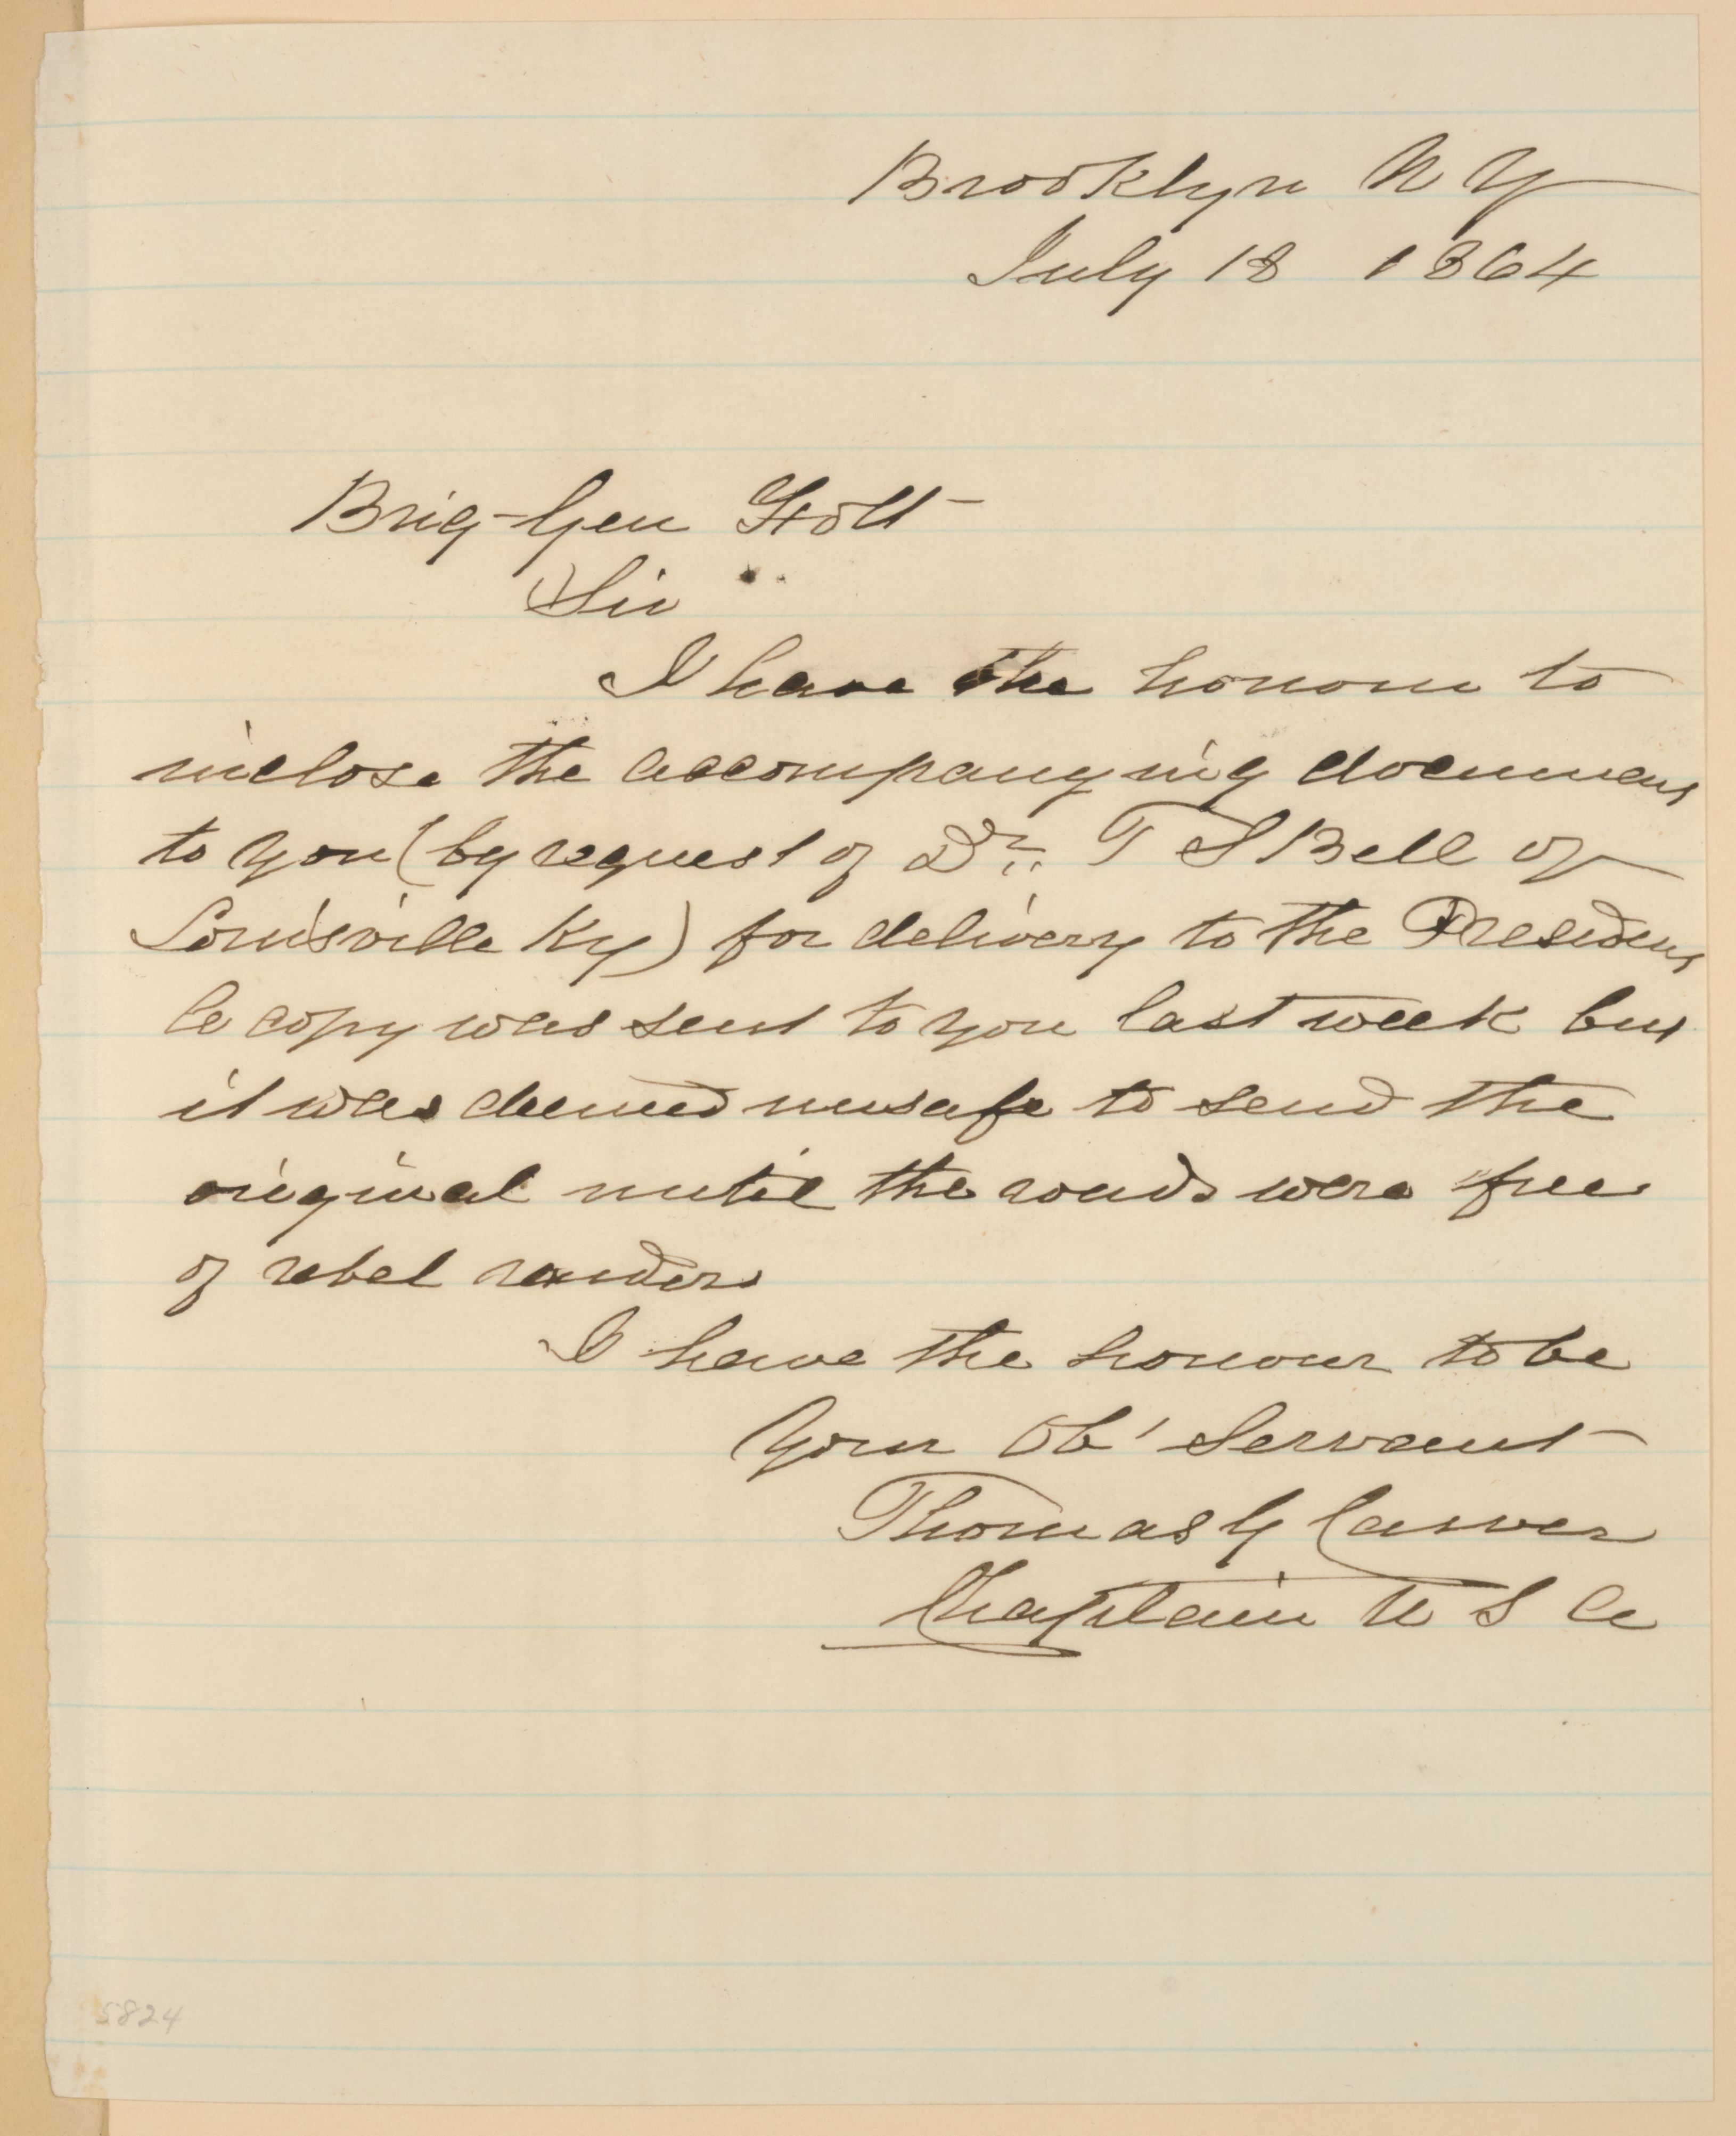 Brooklyn N Y
July 18 1864
Brig-Gen Holt
Sir
I have the honour to
inclose the accompanying document
to you (by request of Dr. T S Bell of
Louisville Ky) for delivery to the President
A copy was sent to you last week but
it was deemed unsafe to send the
original until the roads were free
of rebel raiders
I have the honour to be
Your Ob' Servant
Thomas G Carver
Chaplain U S A
5824